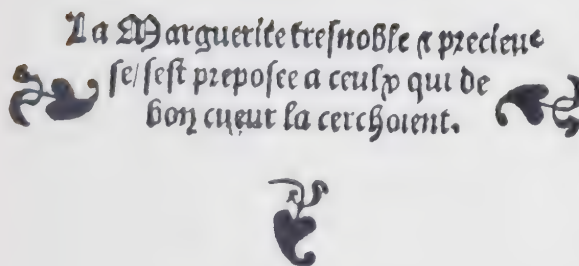 La Marguerite tresnoble ⁊ precieu
se/ sest preposee a ceulx qui de
bon cueur la cerchoient.